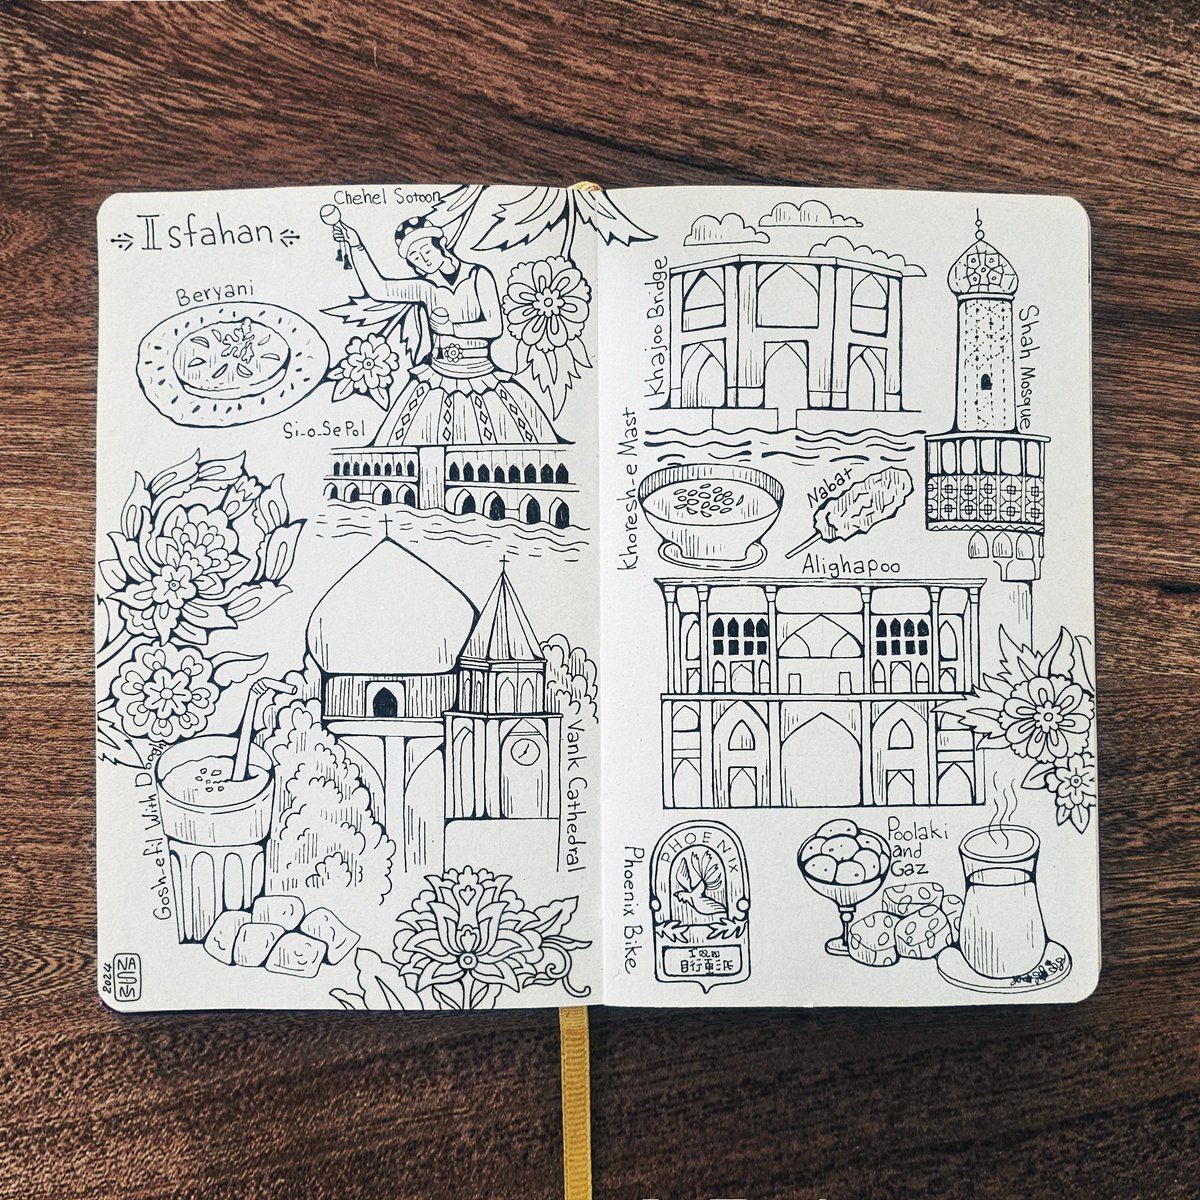 Isfahan
Chehel Sotoon
Beryani
Si-o-Se Pol
Gosh-e fil With Doogh
Vank Cathedral
2024
Khajoo Bridge
Shah Mosque
Khoresh-e Mast
Nabat
Alighapoo
Phoenix Bike
PHOENIX
Poolaki
and
Gaz